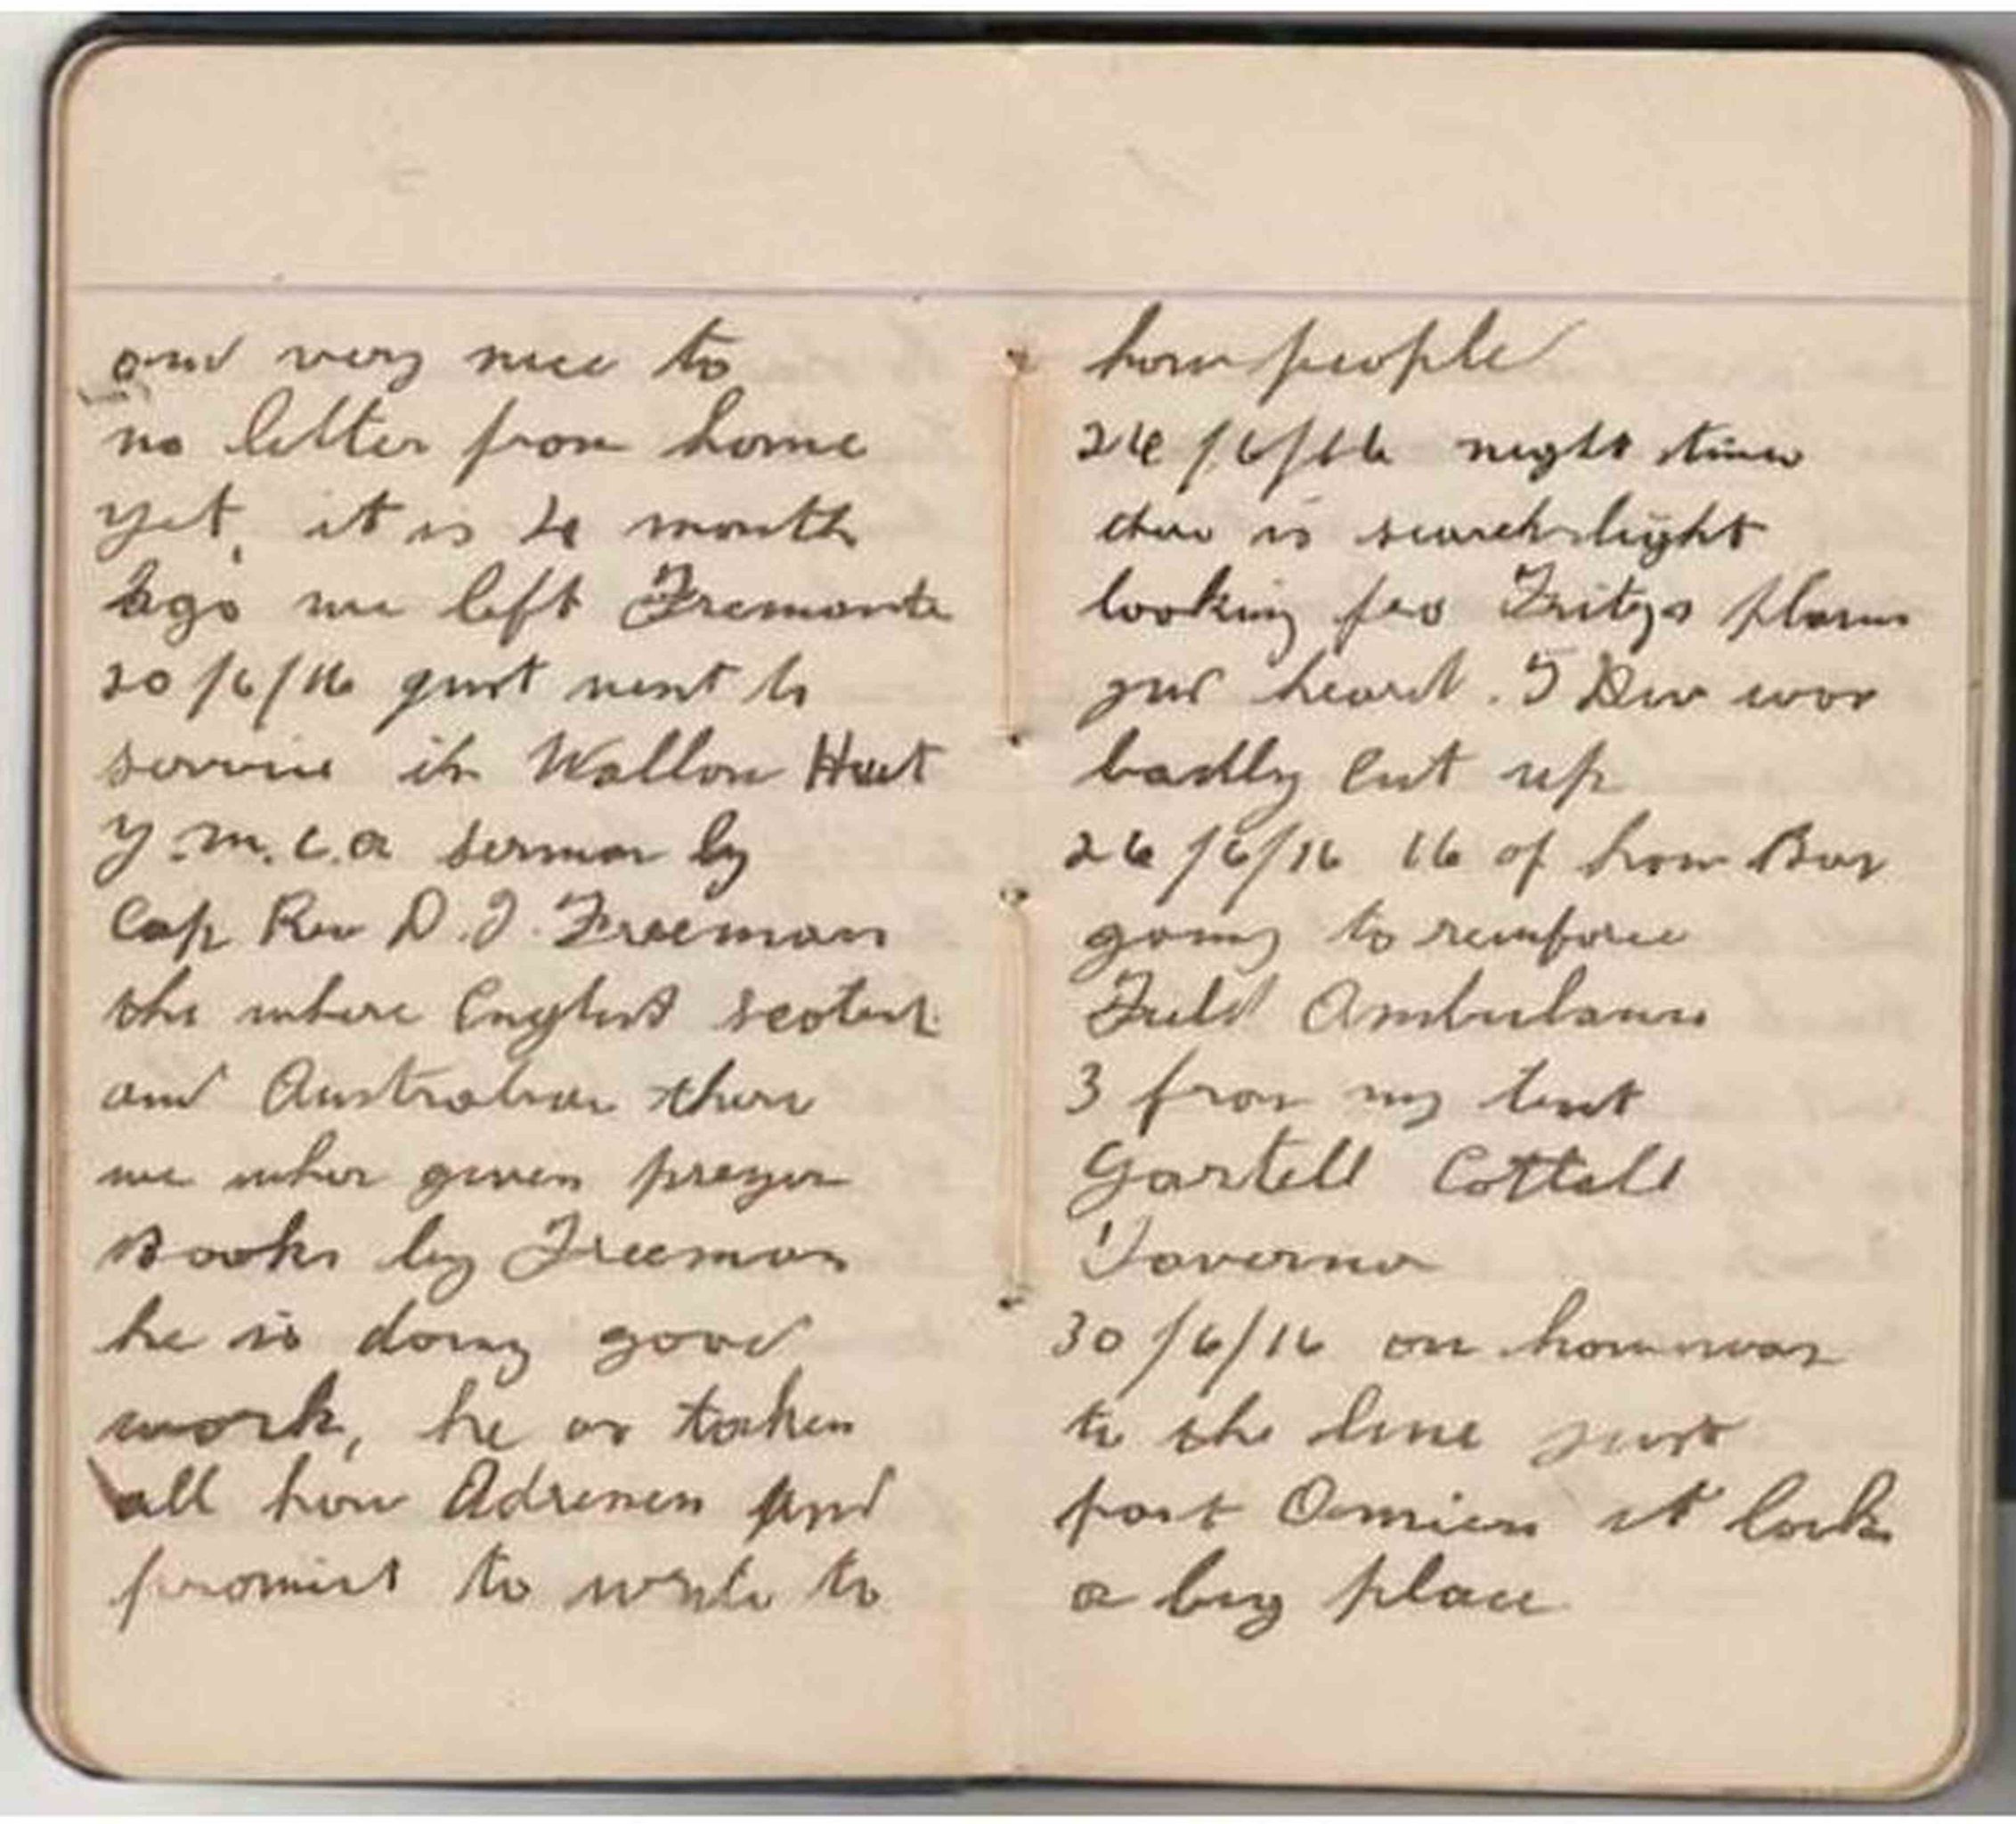 and very nice to
no letter from home
yet, it is 4 month
ago we left Fremante
20/6/16 just went to
service in Wallon Hut
Y.M.C.A sermon by
Cap Rev D.J. Freeman
the where English scotish
and Australian there
we wher given prayer
Books by Freeman
he is doing good
work, he as taken
all how Adresses and
promist to write to
how people
24/6/16 night time
ther is search light
looking for Fritzs plans
jus heard. 5 Div wos
badly cut up
26/6/16 16 of how Boys
going to reinforce
Field Ambulance
3 from my tent
Gartell Cottell
Taverner
30/6/16 on how way
to the line just
past Amiens it looks
a big place